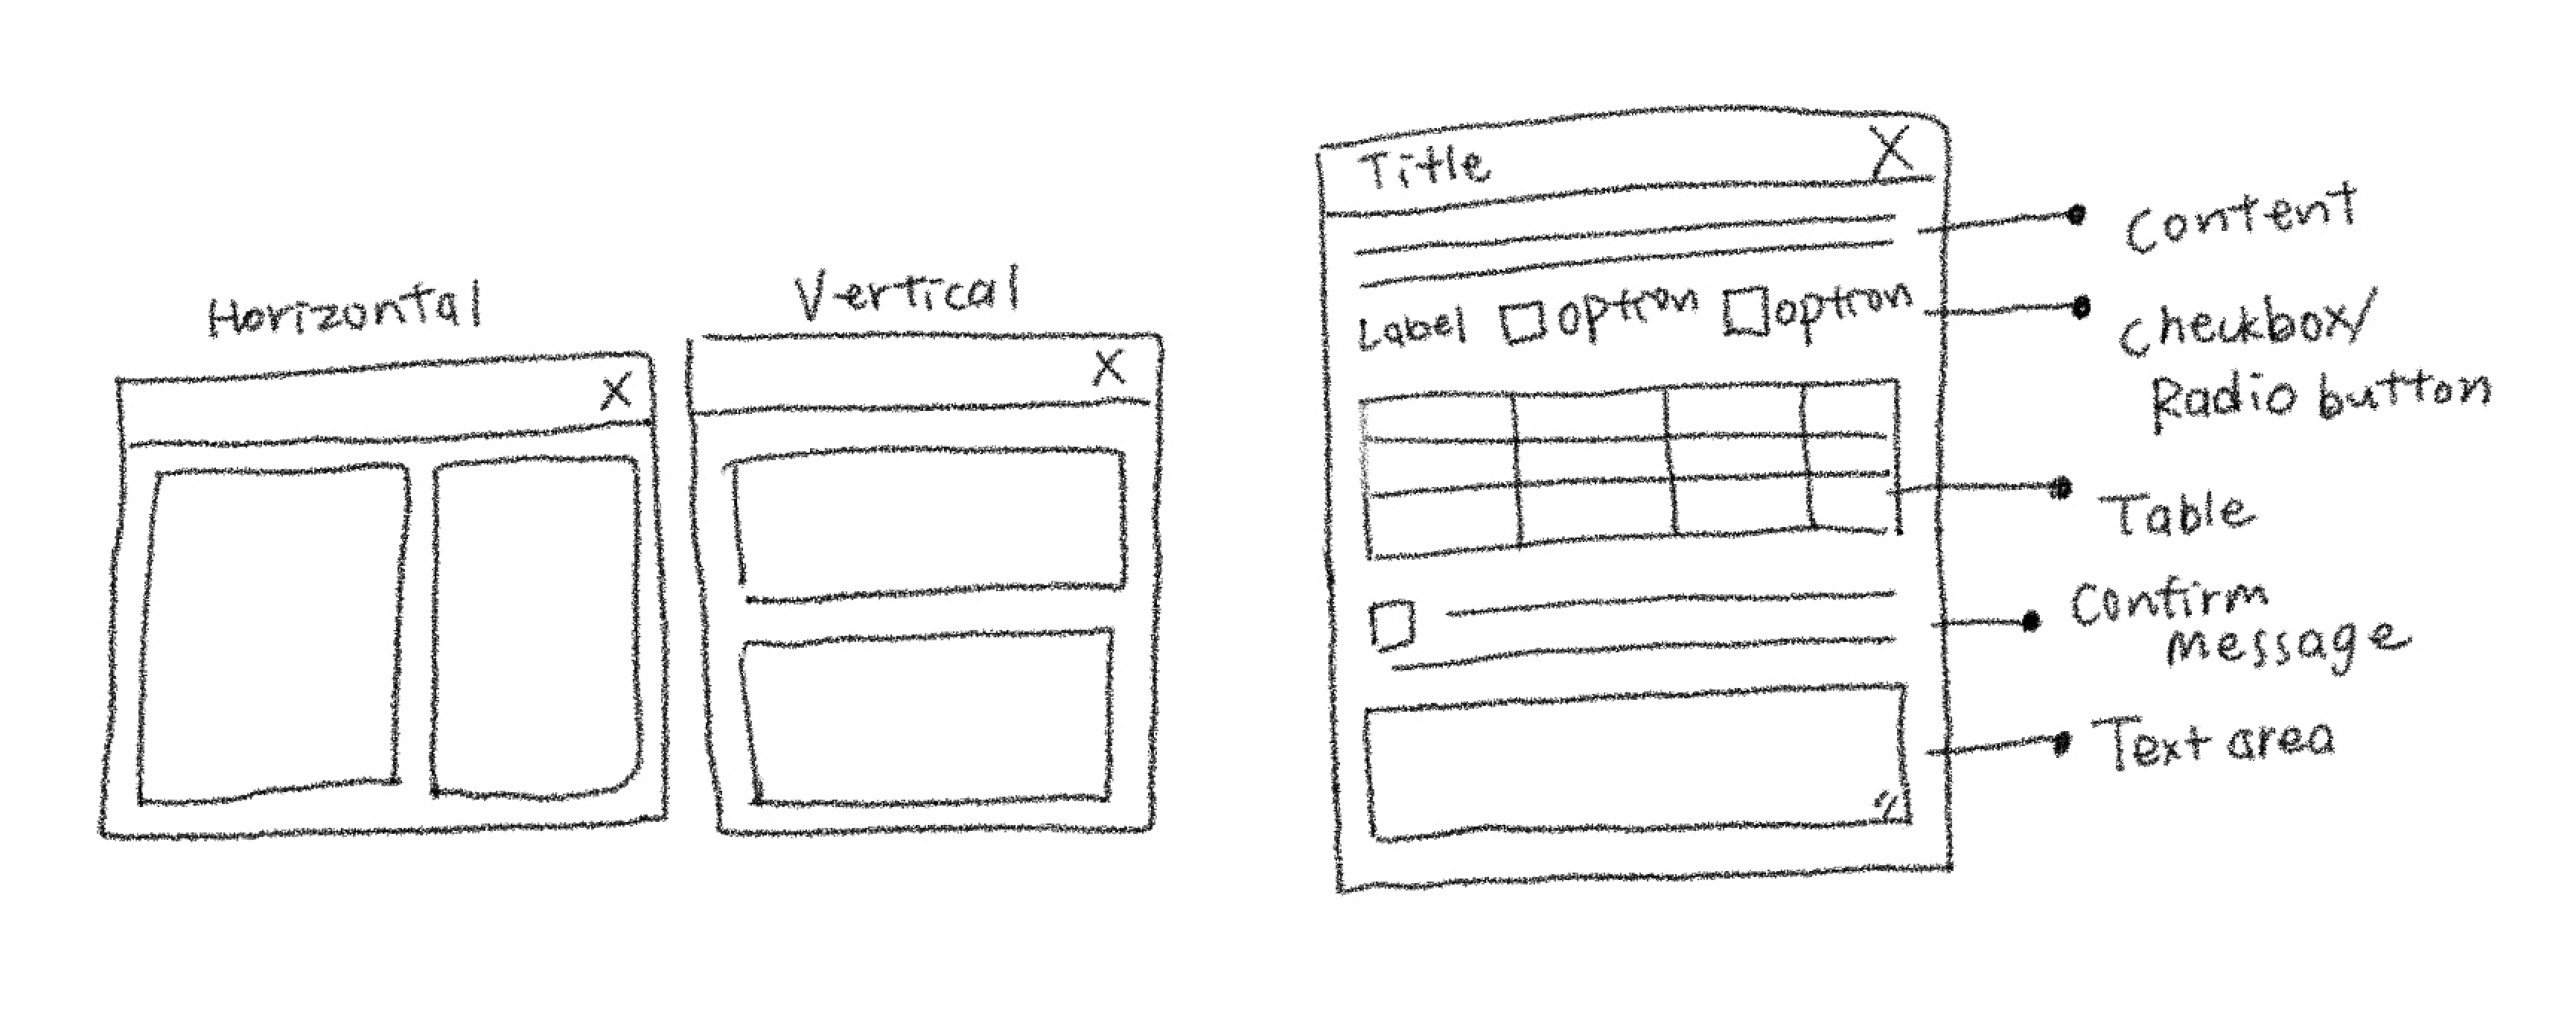 Horizontal
X
Vertical
X
Title X
Label option option
Content
Checkbox/
Radio button
Table
Confirm
message
Text area